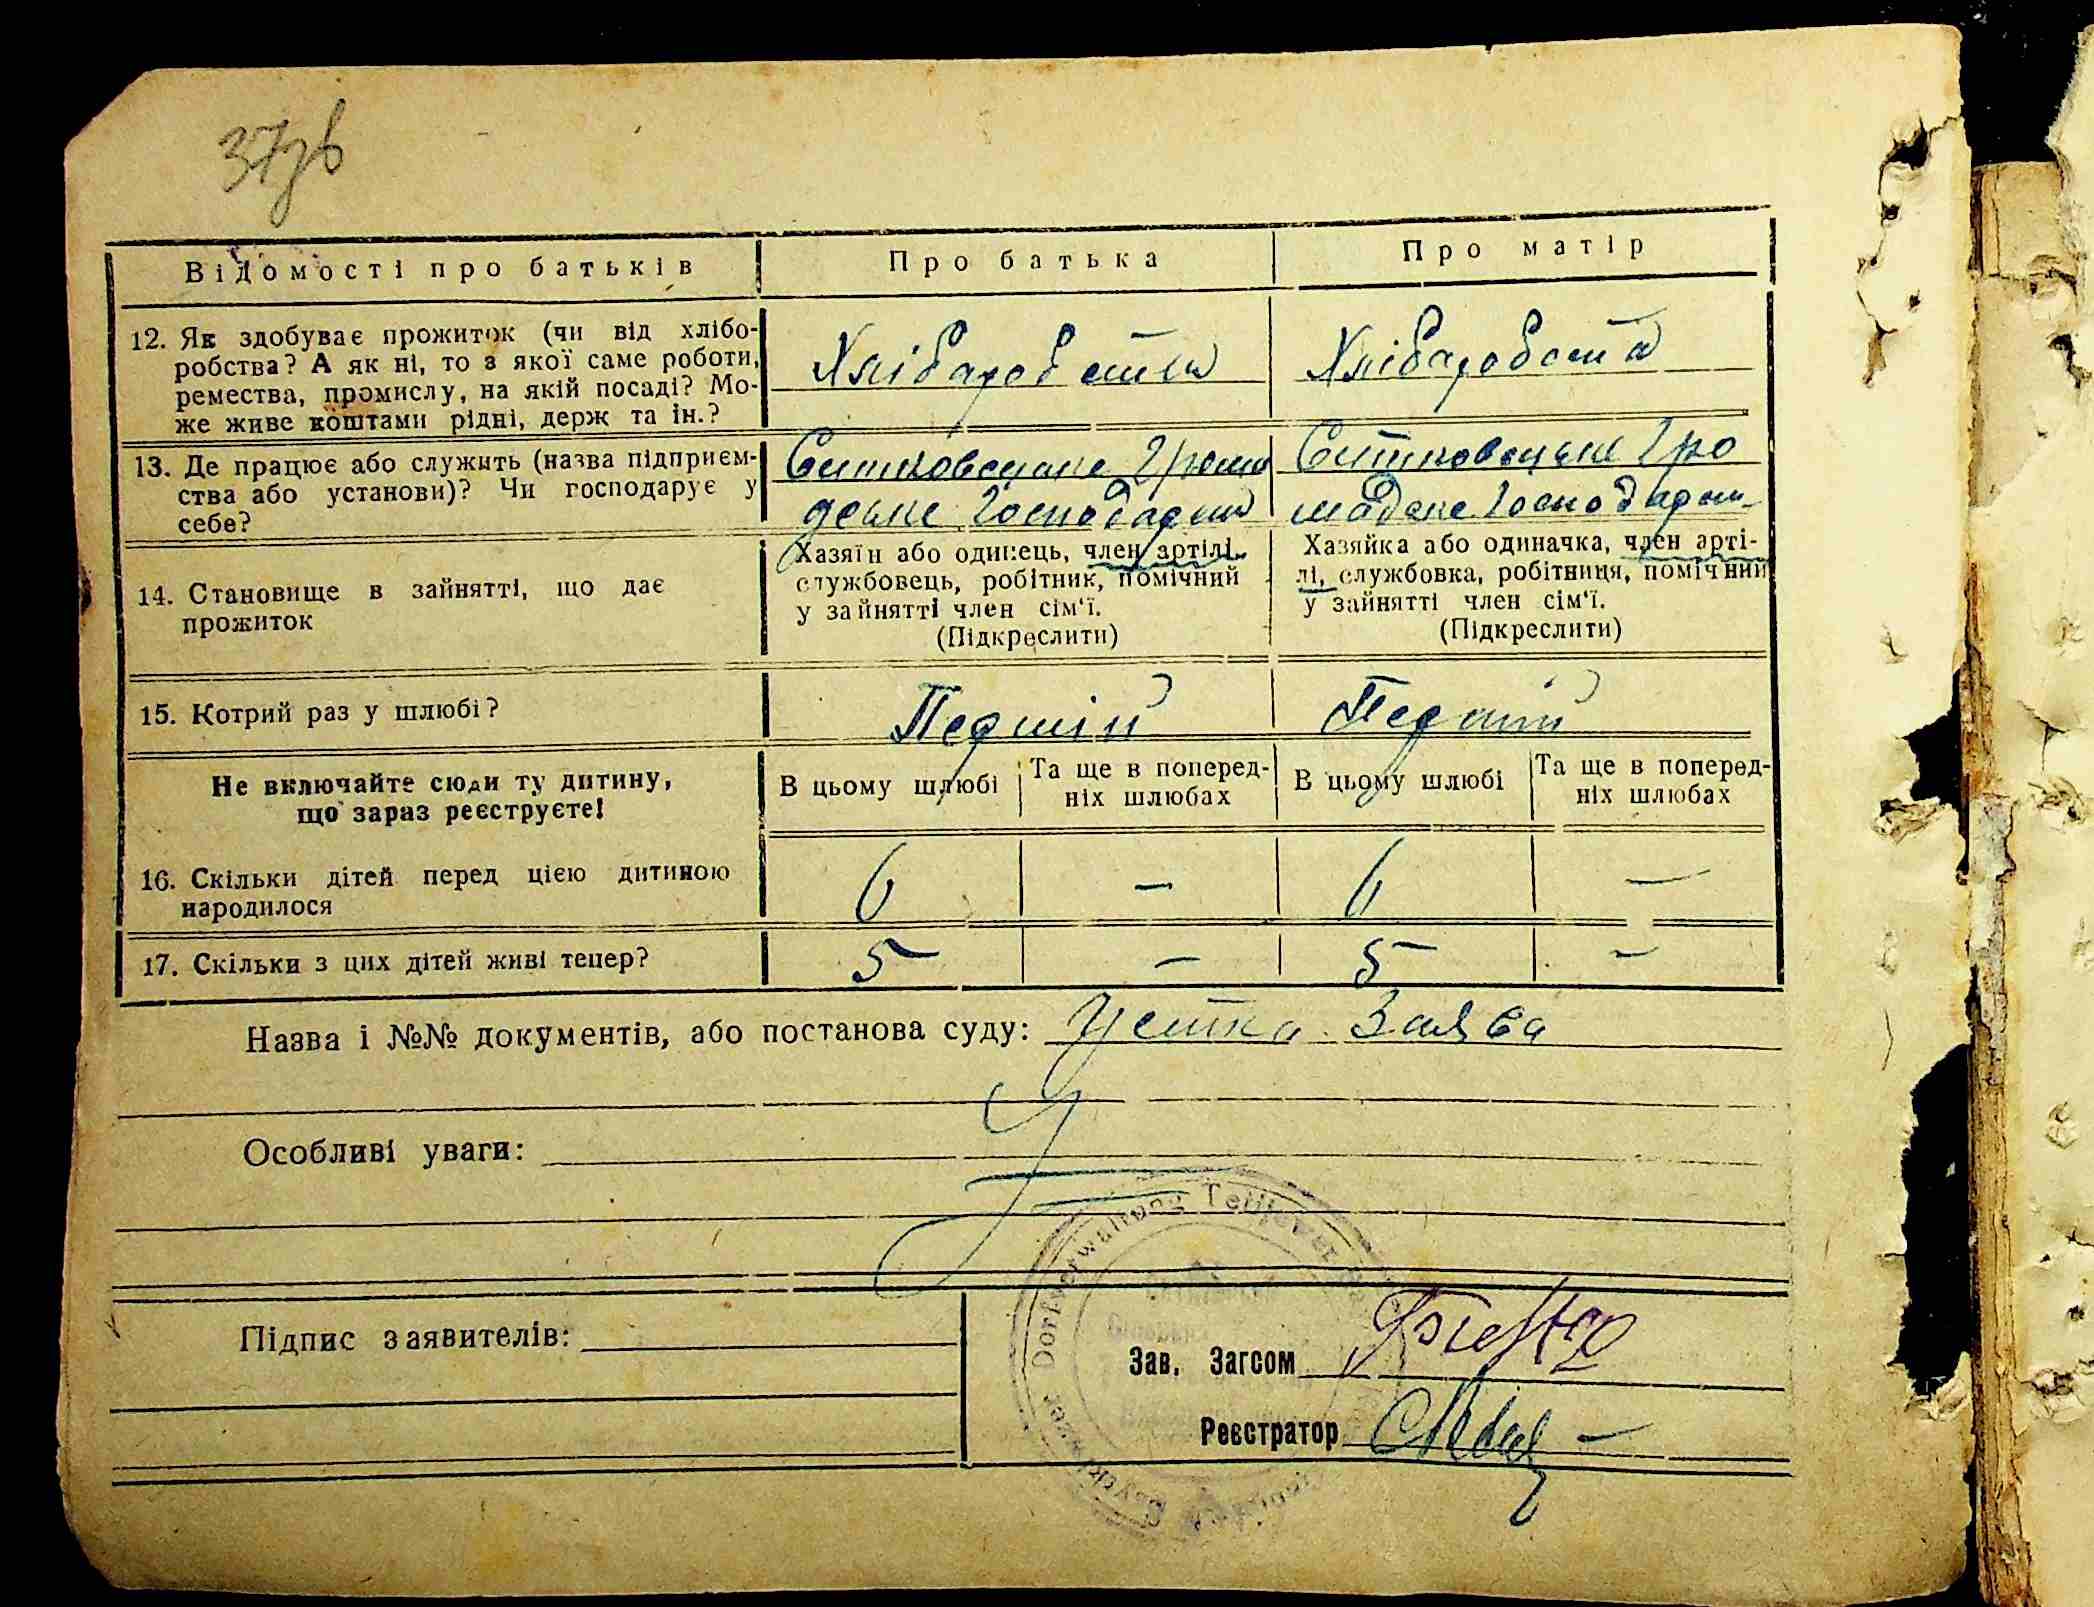 37зв
Відомості про батьків
Про батька
Про матір
12. Як здобуває прожиток (чи від хлібо-
робства? А як ні, то з якої саме роботи,
ремества, промислу, на якій посаді? Мо-
же живе коштами рідні, держ та ін.?
Хліборобства
Хліборобства
13. Де працює або служить (назва підприєм-
ства або установи)? Чи господарує у
себе?
Ситковецьке Грома
дське Господарст
Ситковецьке Гро
мадське Господарст
14. Становище в зайнятті, що дає
прожиток
Хазяїн або одинець, член артілі,
службовець, робітник, помічний
у зайнятті член сім'ї.
(Підкреслити)
Хазяйка або одиначка, член арті-
лі, службовка, робітниця, помічний
у зайнятті член сім'ї.
(Підкреслити)
15. Котрий раз у шлюбі?
Перший
Перший
Не включайте сюди ту дитину,
що зараз реєструєте!
В цьому шлюбі
Та ще в поперед-
ніх шлюбах
В цьому шлюбі
Та ще в поперед-
ніх шлюбах
16. Скільки дітей перед цією дитиною
народилося
6 — 6 —
17. Скільки з цих дітей живі тепер?
5 — 5 —
Назва і №№ документів, або постанова суду: Устна Заява
Особливі уваги:
Підпис заявителів:
Зав. Загсом
Реєстратор
Dorfverwaltung